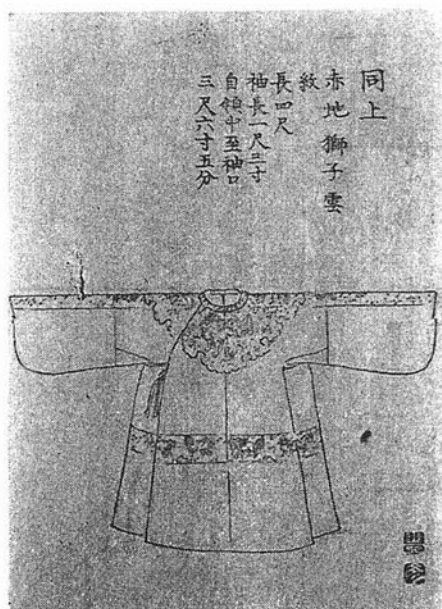 同上
赤地獅子雲
紋
長四尺
袖長一尺三寸
自領中至袖口
三尺六寸五分